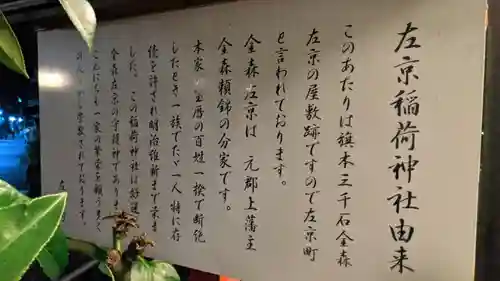 左京稲荷神社由来
このあたりは旗本三千石金森
左京の屋敷跡ですので左京町
と言われております。
金森左京は 元郡上藩主
金森頼錦の分家です。
本家 宝暦の百姓一揆で断絶
したとき一族でたゞ一人特に存
続を許され明治維新まで
した。この稲荷神社は
金森左京の守護神であり
一家の繁栄を願う